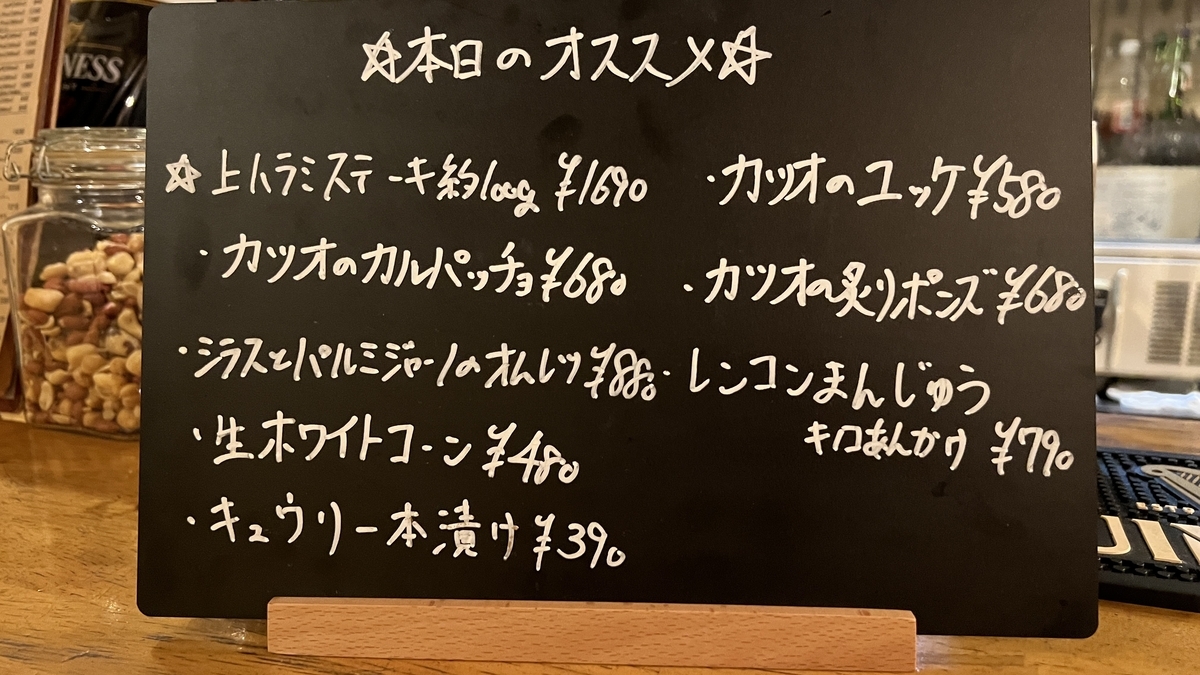 ☆本日のオススメ☆
☆上ハラミステーキ約100g ¥1690
・カツオのカルパッチョ ¥680
・シラスとパルミジャーノのオムレツ ¥880
・生ホワイトコーン ¥480
・キュウリ一本漬け ¥390
・カツオのユッケ ¥580
・カツオの炙りポンズ ¥680
・レンコンまんじゅう
キノコあんかけ ¥790
NESS
UIN